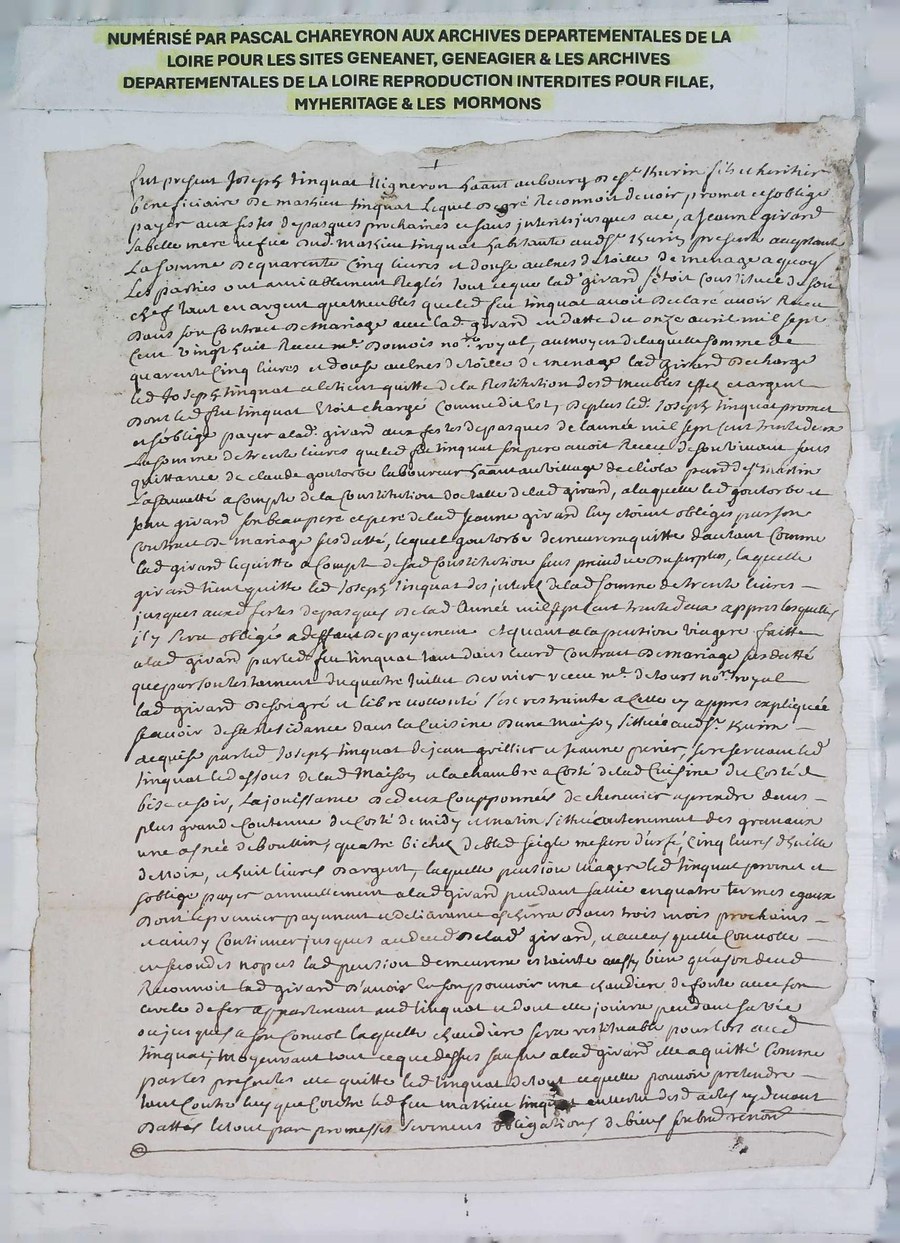 NUMÉRISÉ PAR PASCAL CHAREYRON AUX ARCHIVES DEPARTEMENTALES DE LA
LOIRE POUR LES SITES GENEANET, GENEAGIER & LES ARCHIVES
DEPARTEMENTALES DE LA LOIRE REPRODUCTION INTERDITES POUR FILAE,
MYHERITAGE & LES MORMONS
fut present Joseph tinquat Vigneron habitant au bourg de St. thurin fils et heritier
beneficiaire de mathieu tinquat lequel de gré Reconnoit devoir, promet et soblige
payer aux festes de pasques prochaines et sans interits jusques ace, a Jeanne girard
sa belle mere vefve dud. mathieu tinquat habitante aud. St. thurin presente acceptante
La somme de quarente Cinq livres et douse aulnes de toille de menage a quoy
Les parties ont amiablement Reglés tout ce que lad. girard setoit Constituée de son
chef tant en argent que meubles que led. feu tinquat avoit declaré avoir Receu
dans son Contrat de mariage avec lad. girard en datte du onze avril mil sept
Cent vingt huit Receu me. no.re royal, au moyen de laquelle somme de
quarente Cinq livres et douse aulnes de toille de menage lad girard decharge
led Joseph tinquat et le tient quitte de la Restitution desd meubles effets et argent
dont led feu tinquat Etoit chargé Comme dit Est, de plus led. Joseph tinquat promet
et soblige payer a lad. girard aux festes de pasques de lannée mil sept Cent trente deux
La somme de trente livres que led feu tinquat son pere avoit Receu de son vivant sous
quittance de claude goutorbe laboureur habitant au village de pard. de St martin
La sauveté a Compte de la Constitution dotalle de lad girard, a laquelle led goutorbe et
Jean girard son beau pere et pere de lad Jeanne girard luy etoient obligés par son
Contrat de mariage susdatté, lequel goutorbe demeurera quitte dautant Comme
lad girard le quitte a Compte de sad Constitution sans prejudice du surplus, laquelle
girard tient quitte led Joseph tinquat des interets de lad somme de trente livres
jusques auxd festes de pasques de lad Année mil sept Cent trente deux appres lesquelles
il y sera obligé a deffaut de payement et quant a la pention viagere faitte
a lad girard par led. feu tinquat tant dans leurd Contrat de mariage susdatté
que par son testament du quatre Juillet dernier receu me. no.re royal
lad girard de son gré et libre vollonté s'est restrainte a Celle cy appres expliquée
scavoir de sa Residance dans la Cuisine dune maison scittuée aud. St. thurin
acquise par led Joseph tinquat de jean et Jeanne se reservant led
tinquat le dessous de lad Maison et la chambre a Costé de lad Cuisine du Costé de
bise et soir, La jouissance de deux Coupponnées de chenevier a prendre dans
plus grand Contenu du Costé de midy et matin scittué au tenement des gravaux
une asnée de bon vin, quatre bichets de bled seigle mesure d'urfé, Cinq livres dhuille
de Noix, et huit livres dargent, laquelle pention viagere led tinquat promet et
soblige payer annuellement a lad girard pendant sa vie en quatre termes egaux
dont le premier payement et deliverance escherra dans trois mois prochains
et ainsy Continuer jusques au deced de lad girard, et au cas quelle Convolle
en secondes nopces lad pention demeurera esteinte aussy bien qua son deced
Reconnoit lad girard d'avoir en son pouvoir une chaudiere de fonte avec son
cercle de fer appartenant aud tinquat et dont elle jouira pendant sa vie
ou jusques a son Convol laquelle chaudiere sera restituable pour lors aud
tinquat, moyennant tout ce que dessus lad girard elle a quitté Comme
par les presentes elle quitte led tinquat de tout ce quelle pouvoit pretendre
tant Contre luy que Contre led feu mathieu tinquat en vertu desd actes cy devant
dattés le tout par promesses serments obligations de biens